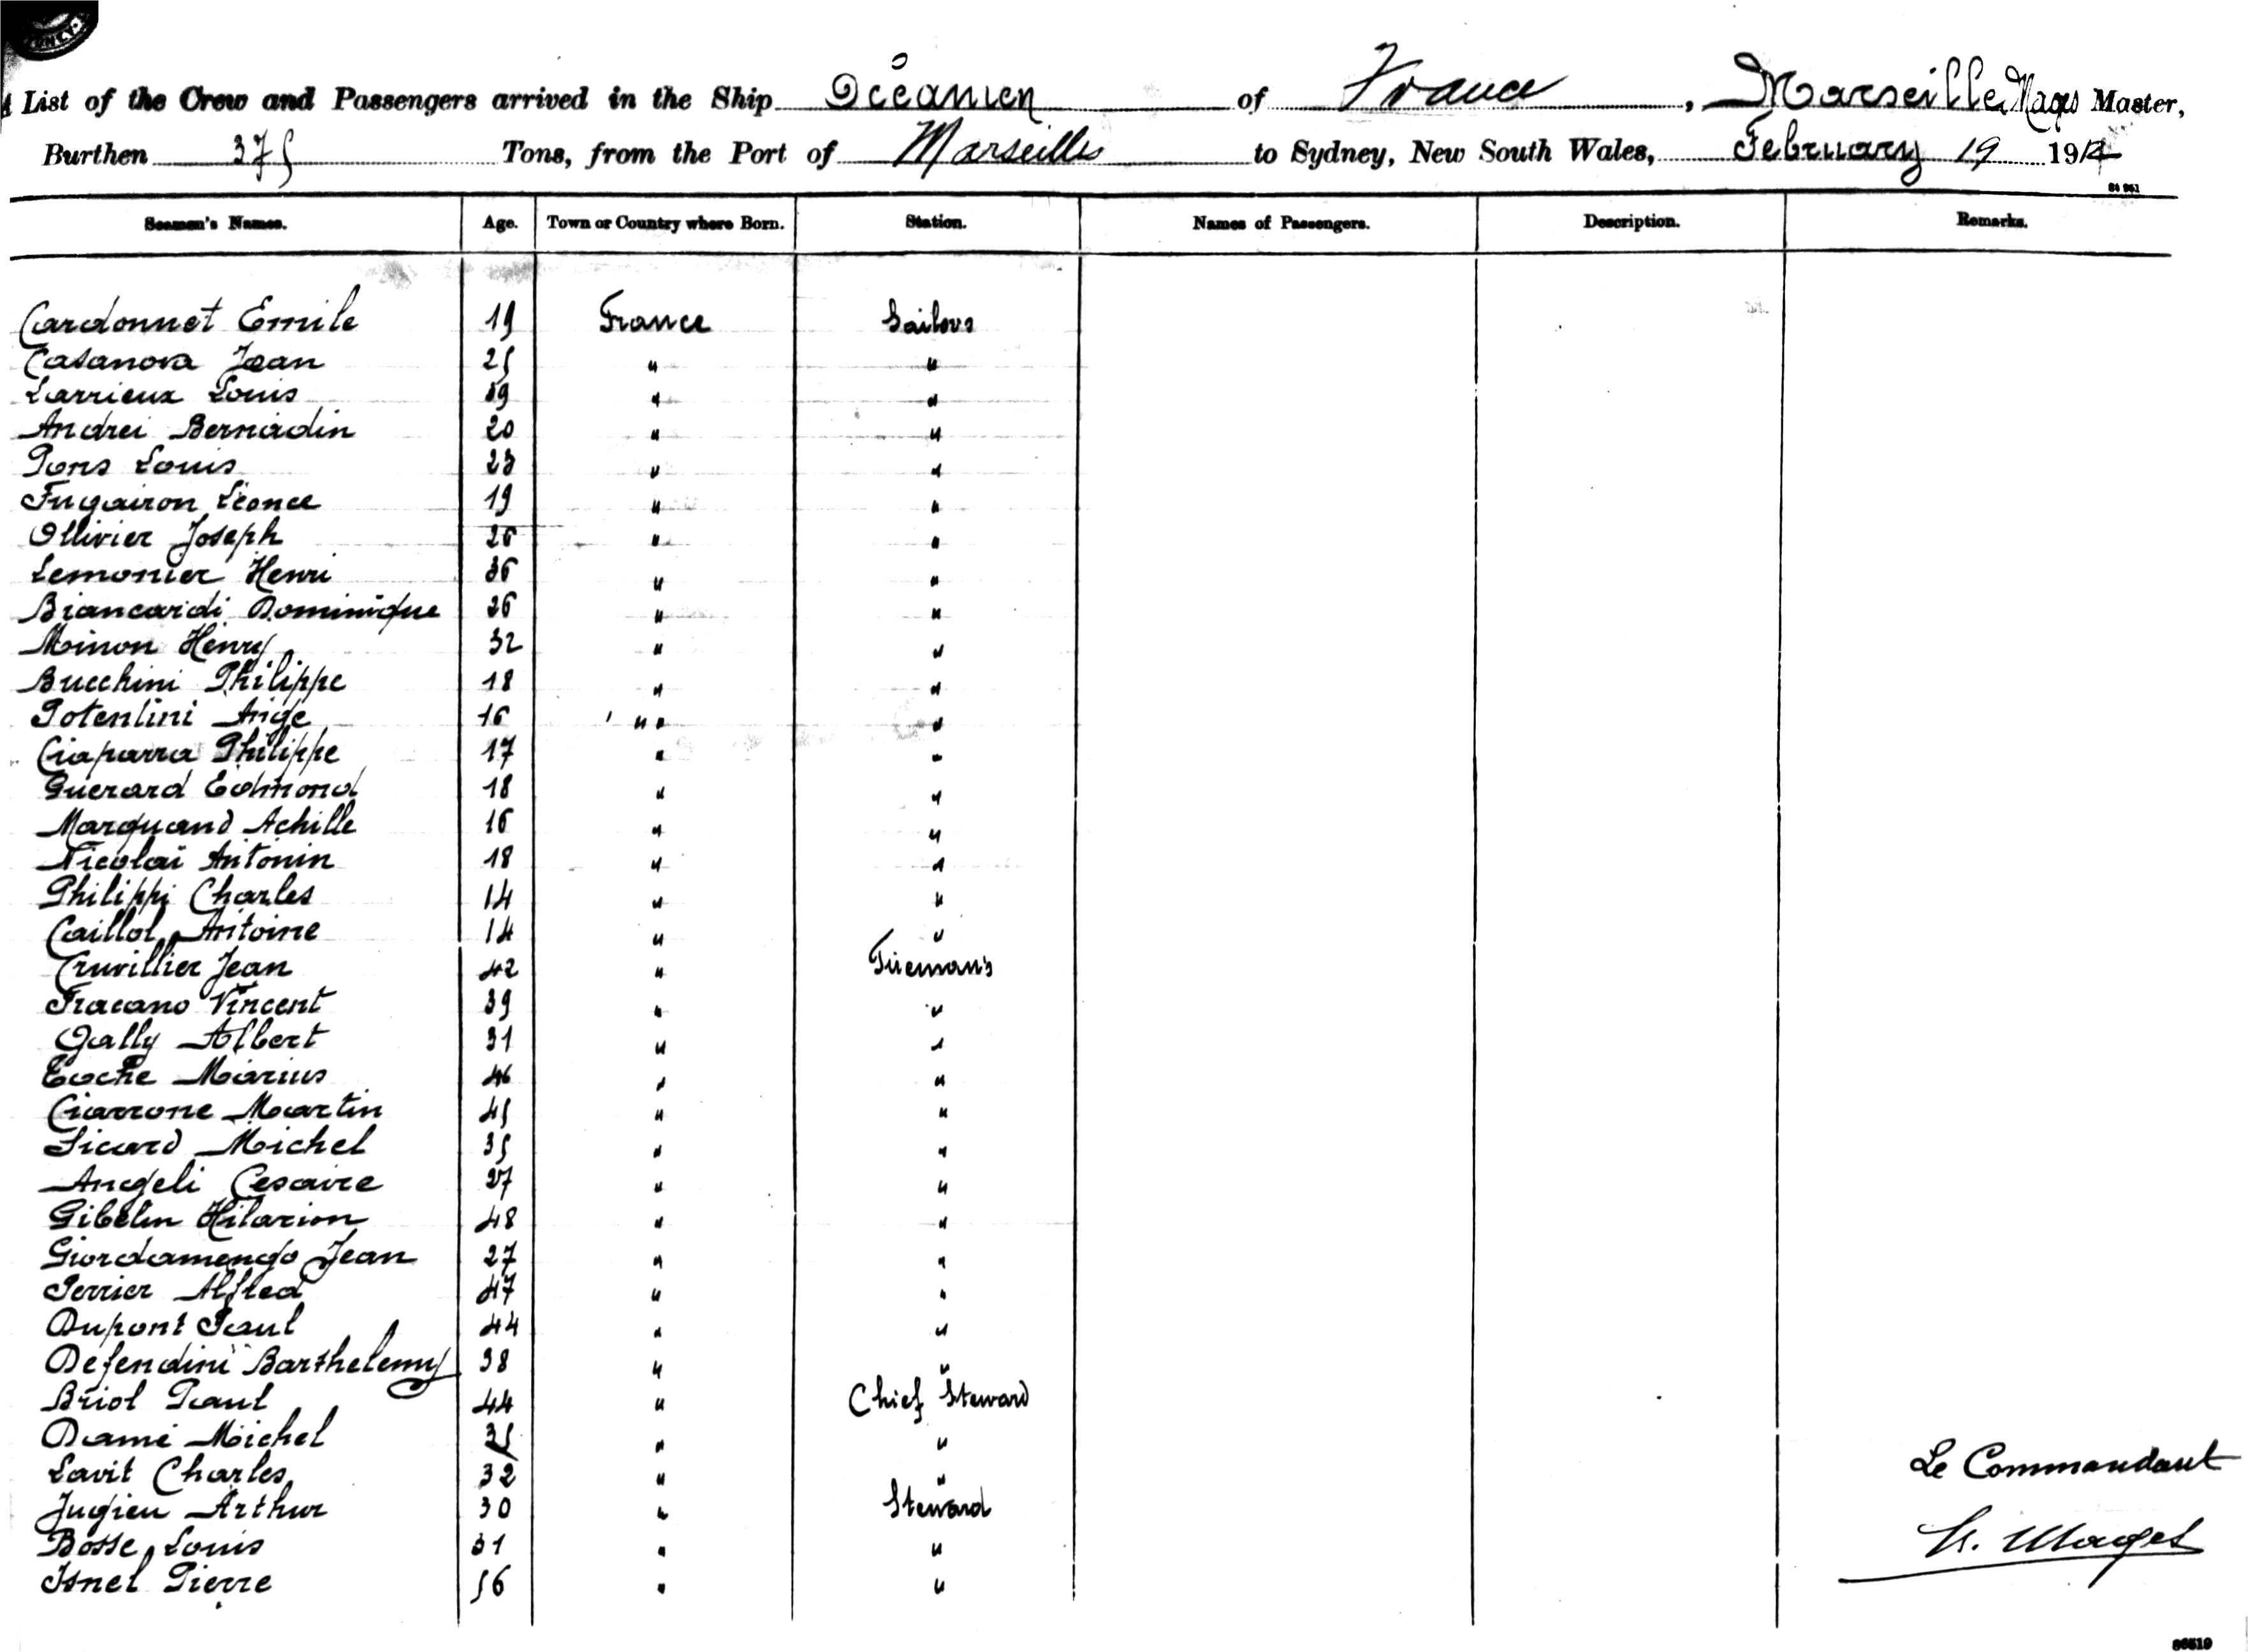 List of the Crew and Passengers arrived in the Ship Océanien of France, Marseille Mages Master,
Burthen 375 Tons, from the Port of Marseilles to Sydney, New South Wales, February 19 191
Seamen's Names. Age. Town or Country where Born. Station. Names of Passengers. Description. Remarks.
Cardonnet Emile 19 France Sailors
Casanova Jean 25 " "
Larrieux Louis 39 " "
Andrei Bernadin 20 " "
Pons Louis 23 " "
Fugairon Léonce 19 " "
Ollivier Joseph 26 " "
Lemonier Henri 36 " "
Biancardi Dominique 26 " "
Minon Henry 32 " "
Bucchini Philippe 18 " "
Potentini Ange 16 " "
Ciaparra Philippe 17 " "
Guerard Edmond 18 " "
Marquand Achille 16 " "
Nicolaï Antonin 18 " "
Philippi Charles 14 " "
Caillol Antoine 14 " "
Cruvillier Jean 42 " Fireman's
Fracano Vincent 39 " "
Gally Albert 31 " "
Eoche Marius 46 " "
Ciarrone Martin 45 " "
Sicard Michel 35 " "
Angeli Cesaire 37 " "
Gibelin Hilarion 48 " "
Giordamengo Jean 27 " "
Perrier Alfred 47 " "
Dupont Paul 44 " "
Defendini Barthelemy 38 " "
Briol Paul 44 " Chief Steward
Damé Michel 35 " "
Lavit Charles 32 " "
Jugieu Arthur 30 " Steward
Bosse Louis 31 " "
Isnel Pierre 56 " "
Le Commandant
H. Mages